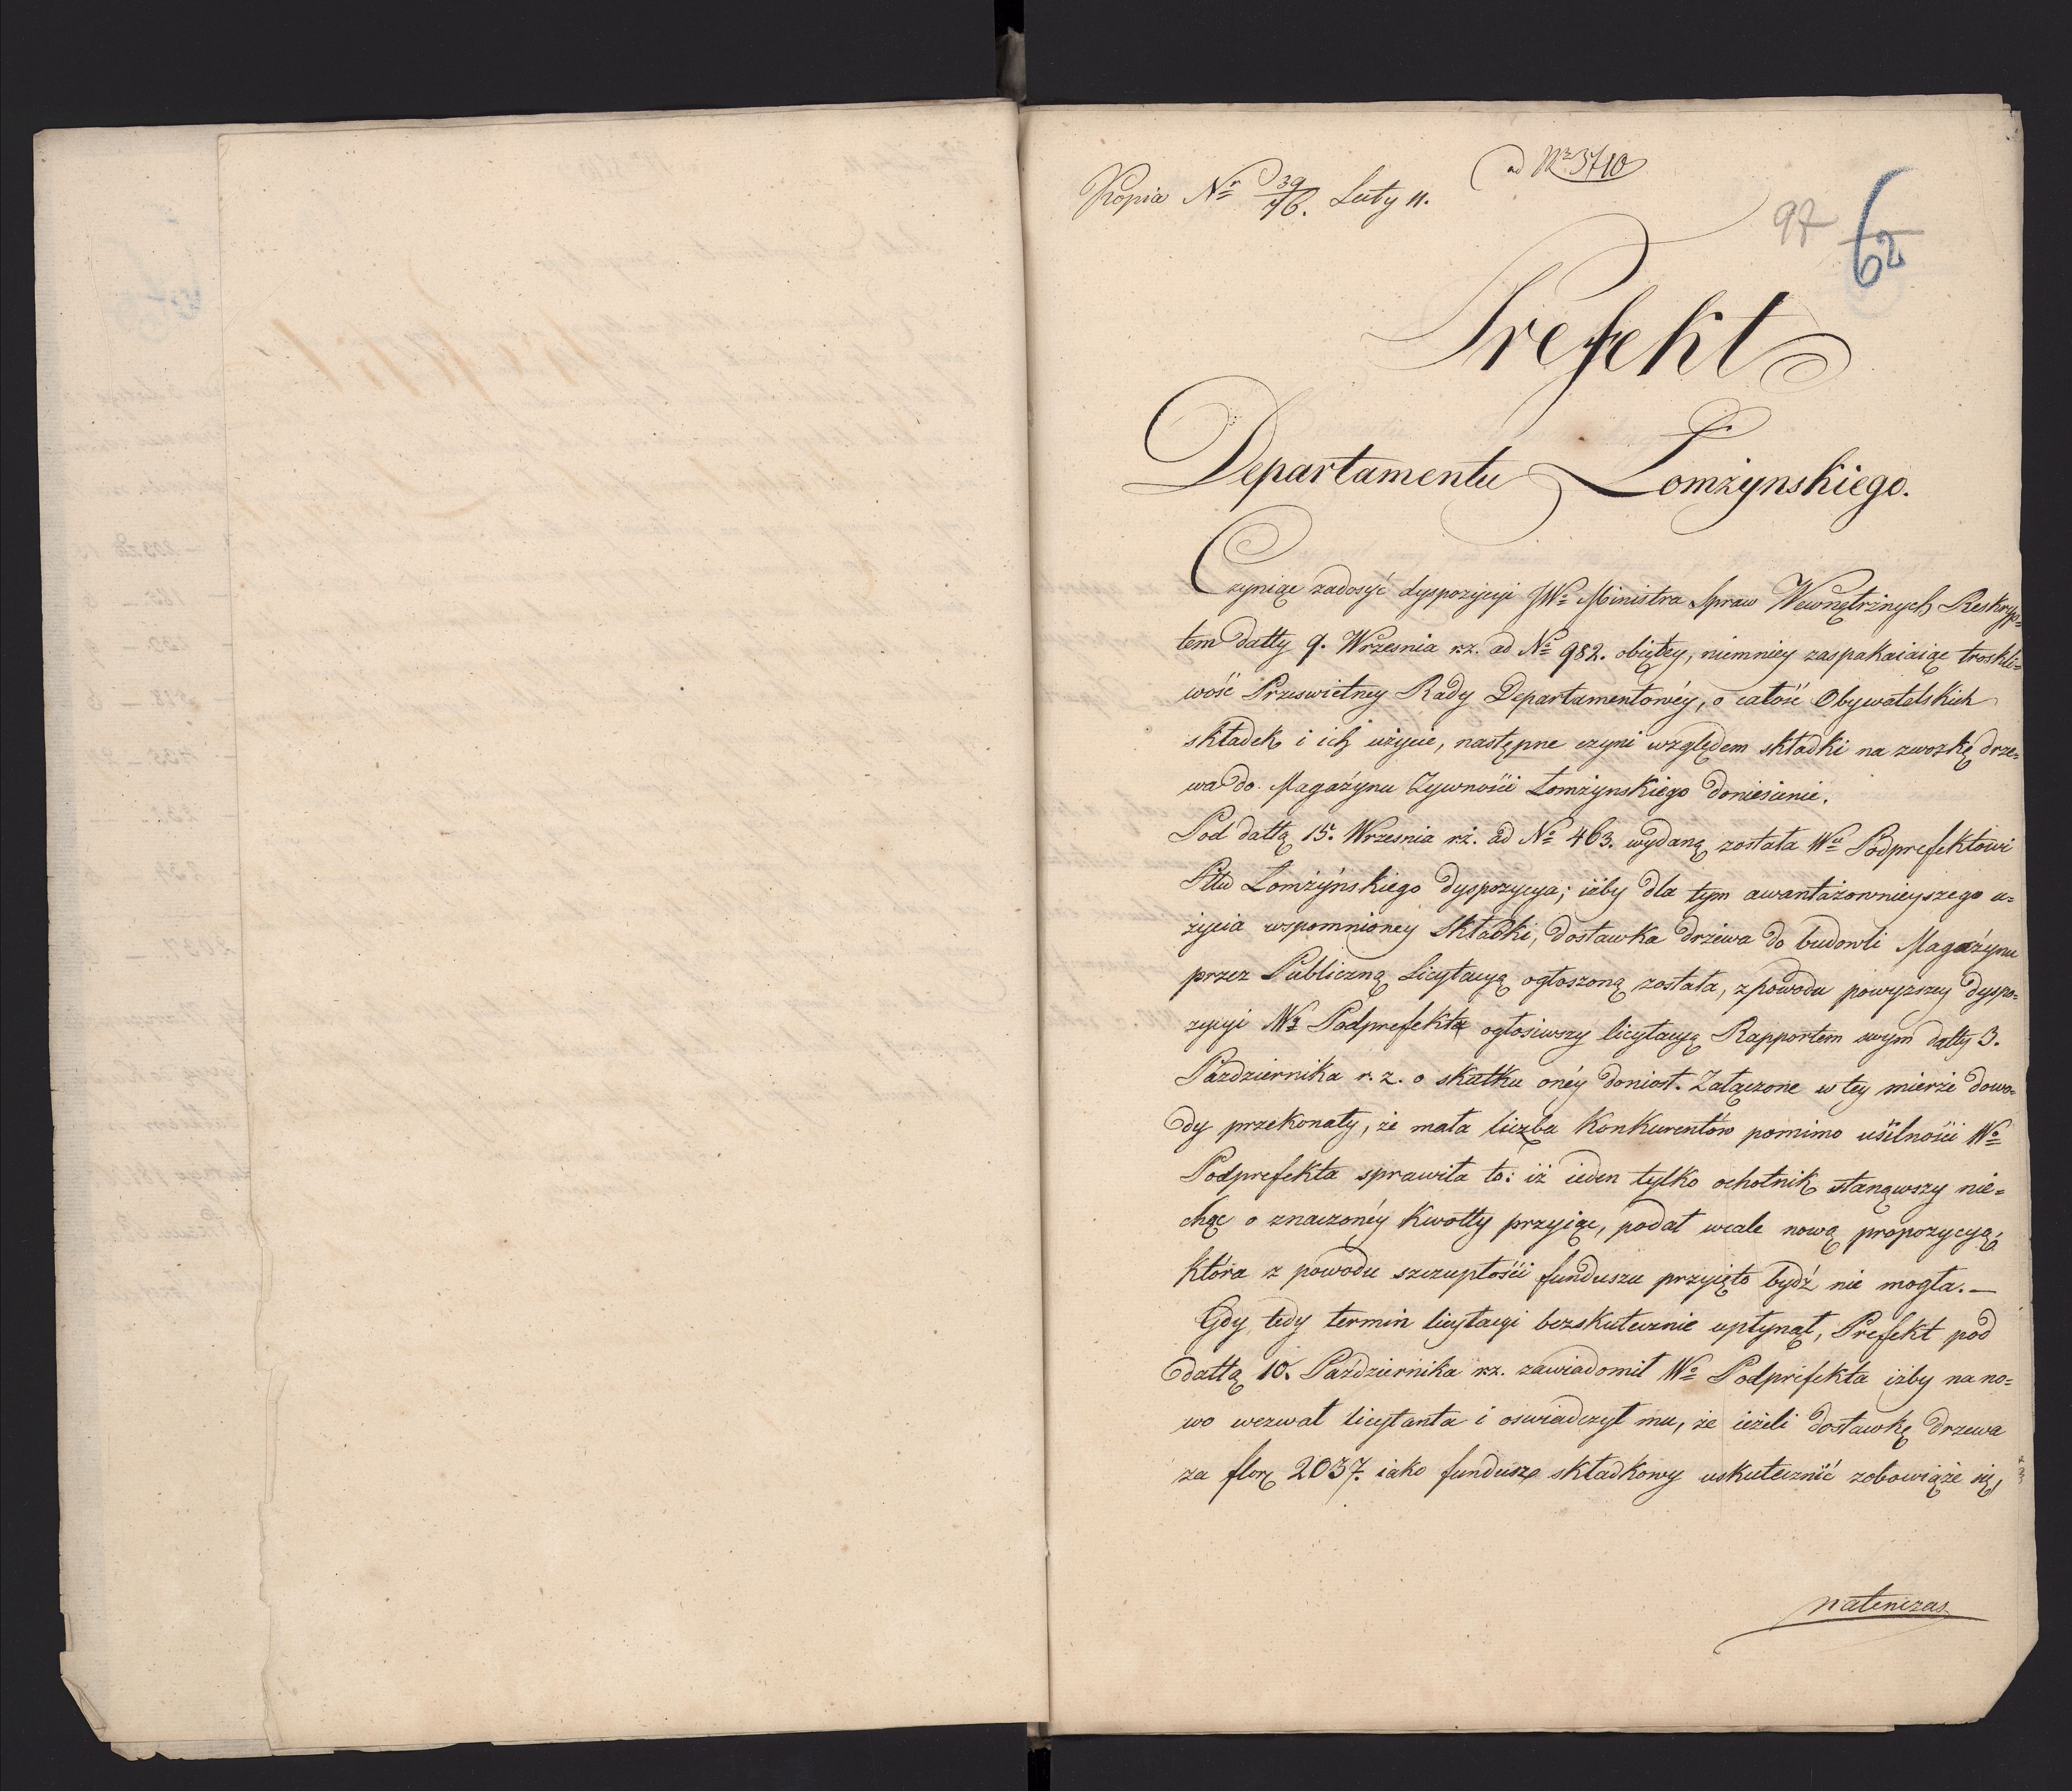 Kopia Nr 39/76. Luty 11.
ad Nr 3710
97
62
Prefekt
Departamentu Łomżynskiego.
Czyniąc zadosyć dyspozycyi JWo Ministra Spraw Wewnętrznych Reskryp=
tem datty 9. Wrzesnia r.z. ad No 982. obiętey, niemniey zaspakaiaiąc troskli=
wość Przeswietney Rady Departamentowéy, o całość Obywatelskich
składek i ich użycie, następne czyni względem składki na zwozkę drze=
wa do Magazynu Zywności Łomżynskiego doniesienie.
Pod dattą 15. Wrzesnia r.z. ad No 463. wydaną została Wu Podprefektowi
Pttu Łomżyńskiego dyspozycya; iżby dla tym awantażownieyszego u=
życia wspomnioney składki, dostawka drzewa do budowli Magazynu
przez Publiczną Licytacyą ogłoszoną została, z powodu powyższey dyspo=
zycyi Wy Podprefekt ogłosiwszy licytacyą Rapportem swym datty 3.
Pazdziernika r.z. o skutku onéy doniosł. Załączone w tey mierze dowo=
dy przekonały, że mała liczba Konkurentów pomimo usilności Wo
Podprefekta sprawiła to: iż ieden tylko ochotnik stanąwszy nie=
chąc oznaczonéy kwotty przyiąć, podał wcale nową propozycyą,
która z powodu szczupłości funduszu przyięto bydź nie mogła.—
Gdy tedy termin licytacyi bezskutecznie upłynął, Prefekt pod
dattą 10. Pazdziernika r.z. zawiadomił Wo Podprefekta iżby na no=
wo wezwał licytanta i oswiadczył mu, że ieżeli dostawkę drzewa
za flor 2037. iako fundusz składkowy uskutecznić zobowiąże się,
natenczas